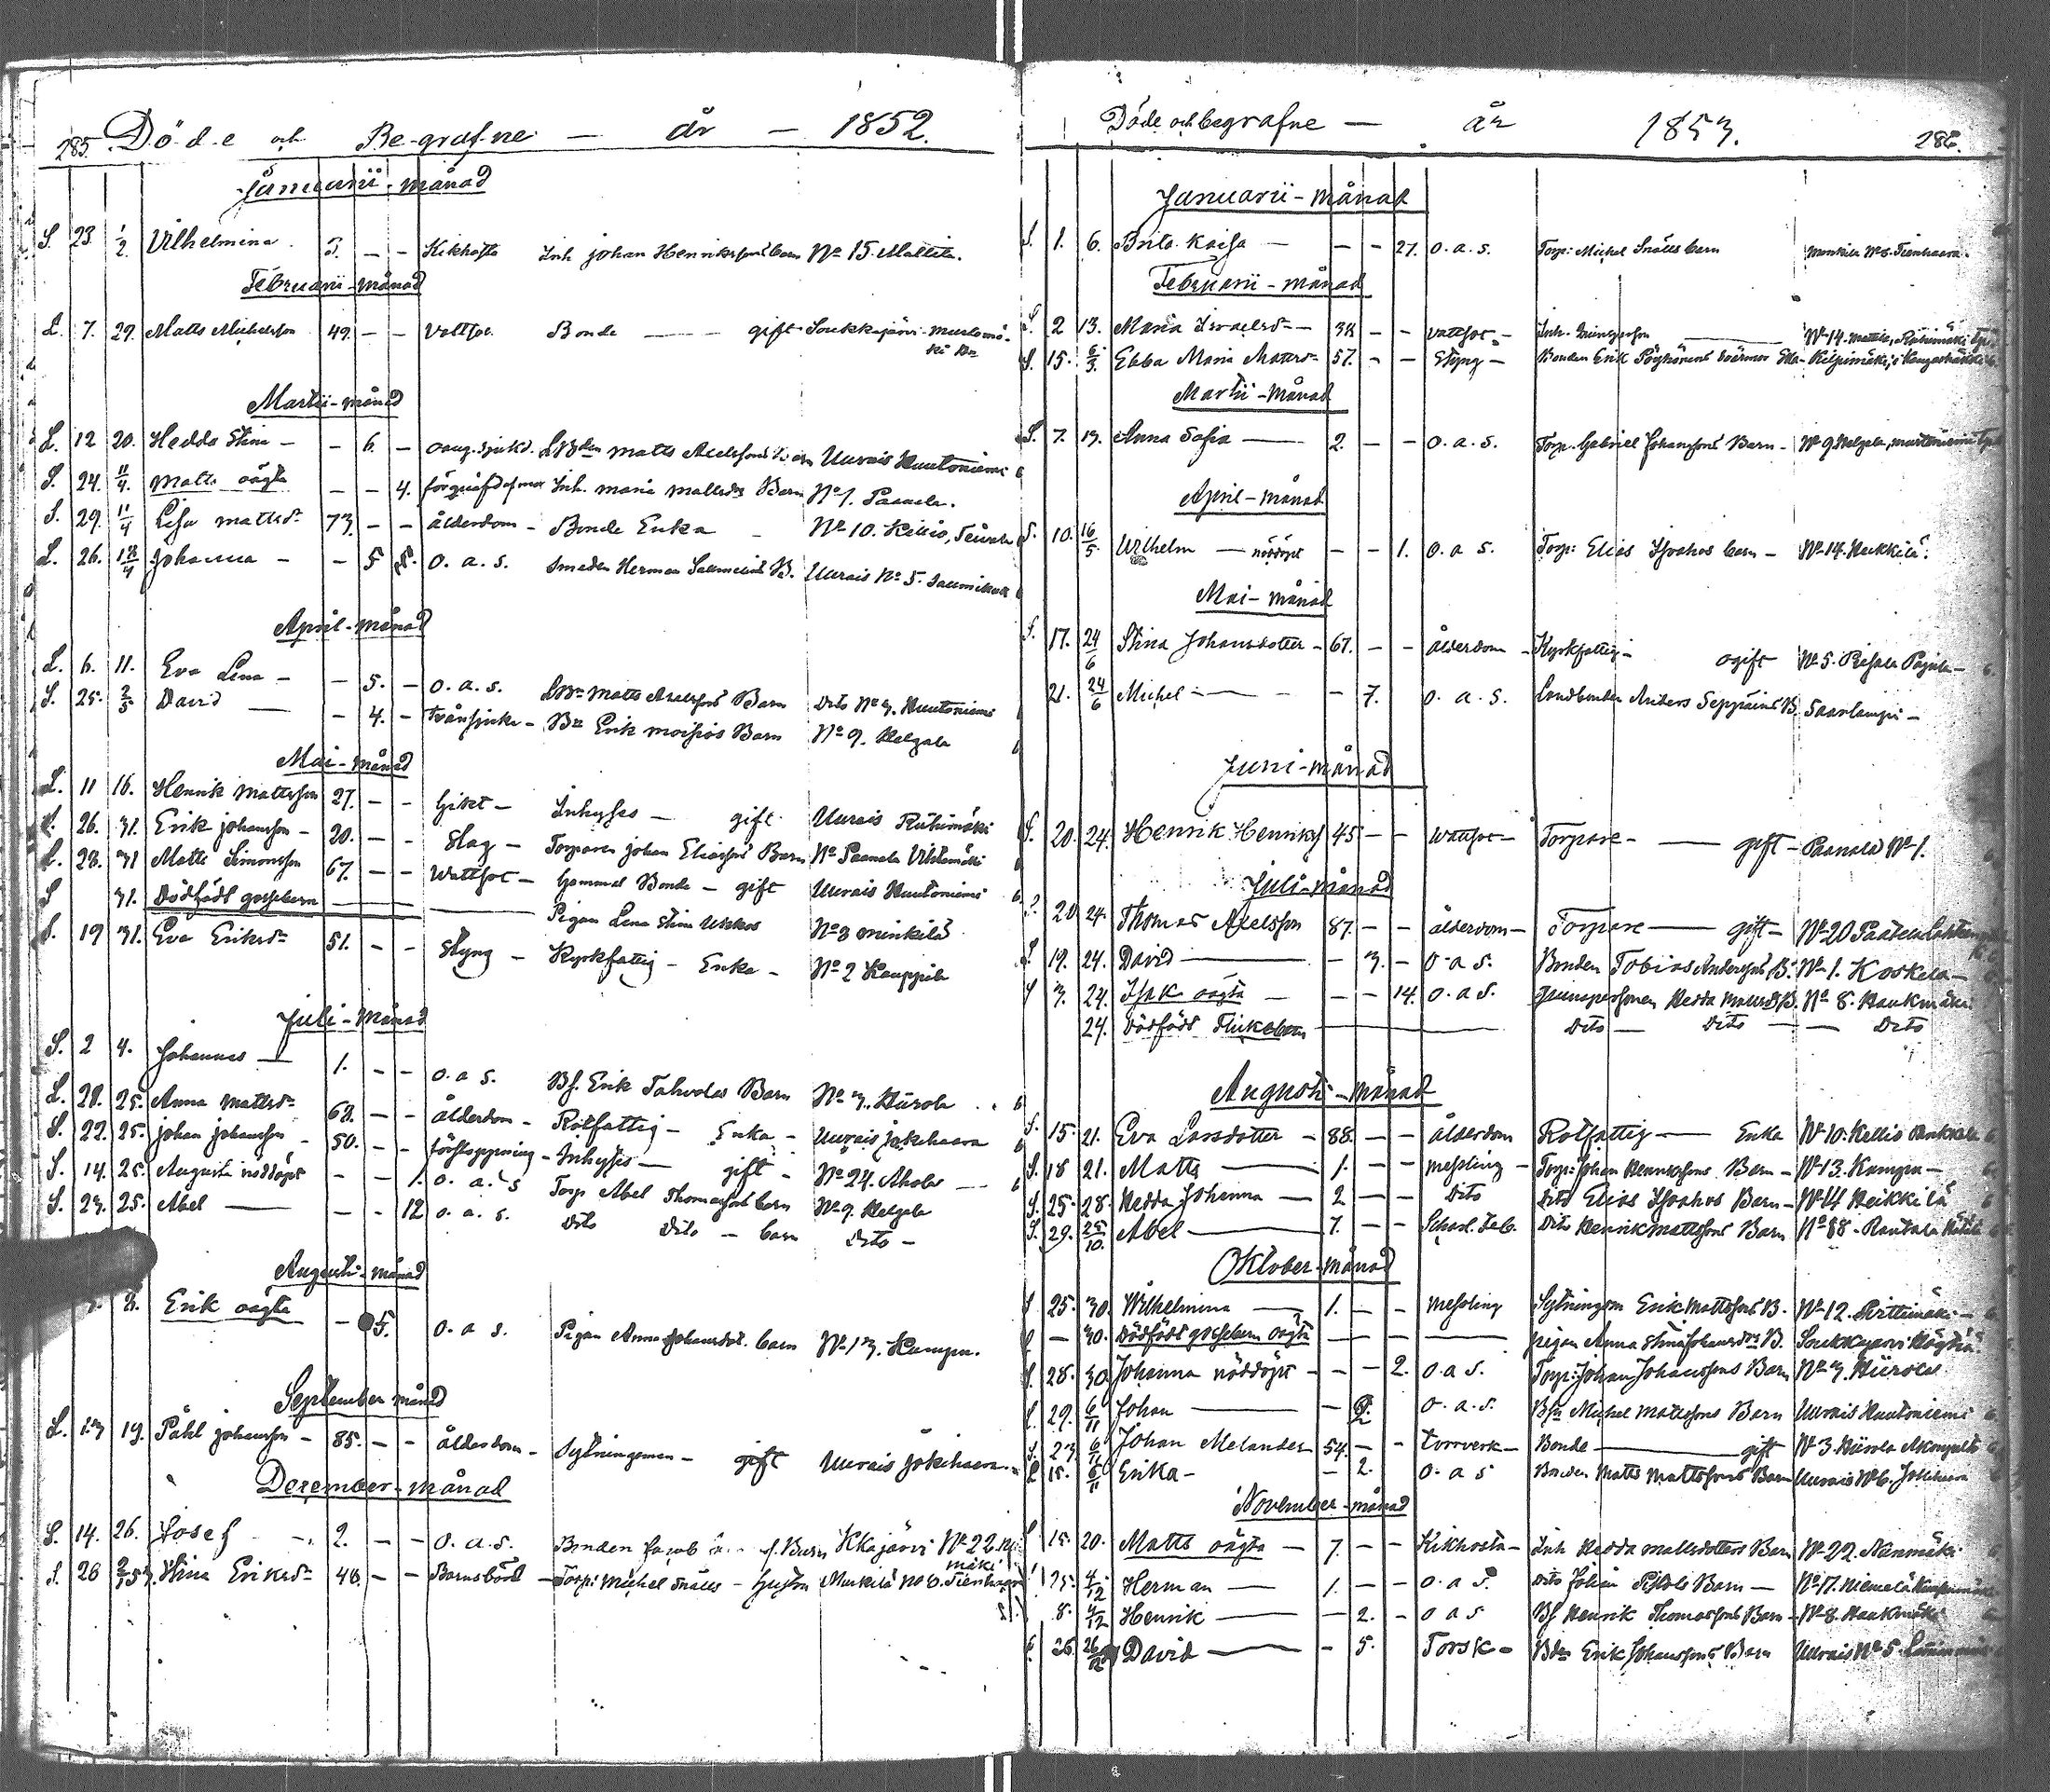 285. Döde och Begrafne — år — 1852.
Januarii - månad
S. 23. 1/2 Vilhelmina. 3. — — Kikhosta Inh johan Henrikssons barn No 15. Mattila.
Februarii - månad
L. 7. 29. Matts Michelsson 49. — — Vattsot. Bonde — gift Soukkajärvi
Martii - månad
L. 12 20. Hedda Stina — — 6. — Matts Axelssons Uurais Huutoniemi
S. 24. 11/4. Matts oägta — — 4. Inh. Maria Mattsdr Barn No 1. Paanala.
S. 29. 11/4 Lisa Mattsdr 73. — — ålderdom — Bonde Enka — No 10. Kellis,
L. 26. 18/4 Johanna — — 5 o. a. s. Smeden Herman B. Uurais No 5.
April - månad
L. 6. 11. Eva Lena — — 5. — o. a. s. Matts Axelssons Barn Dito No 3. Huutoniemi
S. 25. 2/5 David — — 4. — Bn Erik Moisios Barn No 9. Kelgala
Mai - månad
L. 11 16. Henrik Mattsson 27. — — Gikt — Inhyses — gift Uurais Riihimäki
26. 31. Erik johansson — 20. — — Slag — Torparen johan Eliassons Barn No Paanala
L. 28. 31 Matts Simonsson 67. — — Wattsot — Gammal Bonde — gift Uurais Huutoniemi
S 31. Dödfödt gossebarn — Pigan Lena Stina No 3 Minkilä
S. 19 31. Eva Eriksdr 51. — — Styng — Kyrkfattig — Enka — No 2 Kauppila
Juli - månad
S. 2 4. Johannes — 1. — — o. a s. Bf. Erik Tahvolas Barn No 3. Hiirola
L. 20. 25. Anna Mattsdr 62. — — ålderdom — Rotfattig — Enka — Uurais jokihaara
S. 22. 25. johan johansson — 50. — — förstoppning — Inhyses — gift — No 24. Ahola —
S. 14. 25. August nöddöpt — — 1. o. a. s Torp Abel Thomassons barn No 9. Kelgala
S. 23. 25. Abel — — — 12 o. a. s. Dito Dito — barn Dito —
Augusti - månad
8. Erik oägta — 5. o. a s. Pigan Anna Johansdot. barn No 13. Kumpu.
September månad
L. 13 19. Påhl johansson — 85. — — ålderdom — Sytningsman — gift Uurais jokihaara.
Dezember - månad
S. 14. 26. Josef — 2. — — o. a. s. Bonden Jacob Barn Kkajärvi No 22.
mäki
S. 26 2/1 53. Stina Eriksdr 46. — — Barnsbörd — Torp: Michel Snälls — hustru Munkilä No 6. Tienhaara
Döde och begrafne — år 1853. 286.
Januarii - månad
S. 1. 6. Brita Kaisa — — — 27. o. a. s. Torp: Michel Snälls barn Munkila No 6. Tienhaara.
Februarii - månad
S. 2 13. Maria Israelsdr — 38 — — Vattsot — Inh. No 14. Mattila, Riihimäki
S. 15. 6/3. Ebba Maria Mattsdr 57. — — Styng — Bonden Erik Pöyhönens Svärmor Kilpimäki,
Martii - månad
S. 7. 13. Anna Sofia — 2. — — o. a. s. Torp. Gabriel Johanssons Barn — No 9 Kelgala,
April - månad
S. 10. 16/5. Wilhelm — nöddöpt — — 1. o. a s. Torp: Elias barn — No 14. Heikkilä.
Mai - månad
S. 17. 24/6 Stina Johansdotter — 67. — — ålderdom — Kyrkfattig — ogift No 5. Pajula —
21. 24/6 Michel — — 7. o. a. s. Landbonden Anders Seppäins B. Saarlampi —
Juni - månad
S. 20. 24. Henrik Henrikss 45 — — Wattsot — Torpare — gift — Paanala No 1.
Juli - månad
20 24. Thomas Axelsson 87. — — ålderdom — Torpare — gift — No 20 Paatela
S 19. 24. David — — 3. — o a s. Bonden Tobias Anderssons B. No 1. Koskela —
S 3. 24. Isak oägta — — — 14. o. a s. Hedda Mattsdrs B. No 8. Haukmäki
24. Dödfödt Flickebarn — Dito — Dito — — Dito
Augusti - månad
S. 15. 21. Eva Larsdotter — 88. — — ålderdom Rotfattig — Enka No 10. Kellis
S. 18 21. Matts — 1. — — Messling — Torp: Johan Henrikssons Barn — No 13. Kumpu —
S. 25. 28. Hedda Johanna — 2 — — Dito Dito Elias Barn — No 14 Heikkilä
S. 29. 25/10. Abel — 7. — — Scharl. feb. Dito Henrik Mattssons Barn No 88 — Rautala
Oktober - månad
S. 25. 30. Wilhelmina — 1. — — Messling Sytningsm Erik Mattssons B. No 12. Pirttimäki —
— 30. Dödfödt gossebarn oägta — pigan Anna Stina Johansdrs B. Soukkajärvi
28. 30. Johanna nöddöpt — — — 2. o. a s. Torp: Johan Johanssons Barn No 3. Hiirola
29. 6/11 Johan — — o. a. s. Bfn Michel Mattssons Barn Uurais Huutoniemi
S. 23 6/11 Johan Melander 54. — — torrverk — Bonde — gift No 3. Hiirola
15. 6/11 Erika — — 2. o. a s Bonden Matts Mattssons Barn Uurais No 6. Jokihaara
November - månad
15. 20. Matts oägta — 7. — — Kikhosta — Inh Hedda Mattsdotters Barn No 22. Nenmäki
25. 4/12 Herman — 1. — — o. a s. Dito Johan Barn — No 17. Niemelä
8. 4/12 Henrik — — 2. — o a s Bf Henrik Thomassons Barn — No 8. Haukmäki
26. 26/12 David — — 5. Torsk — Bden Erik Johanssons Barn Uurais No 5.